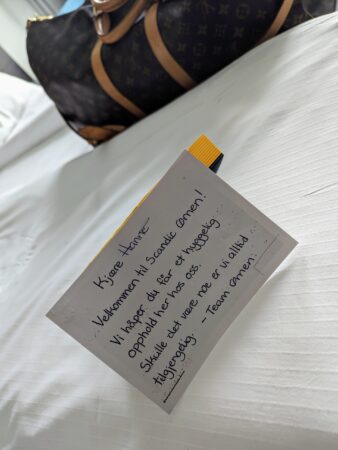 Kjære Hanne
Velkommen til Scandic Ørnen!
Vi håper du får et hyggelig
opphold her hos oss.
Skulle det være noe er vi alltid
tilgjengelig. - Team Ørnen.